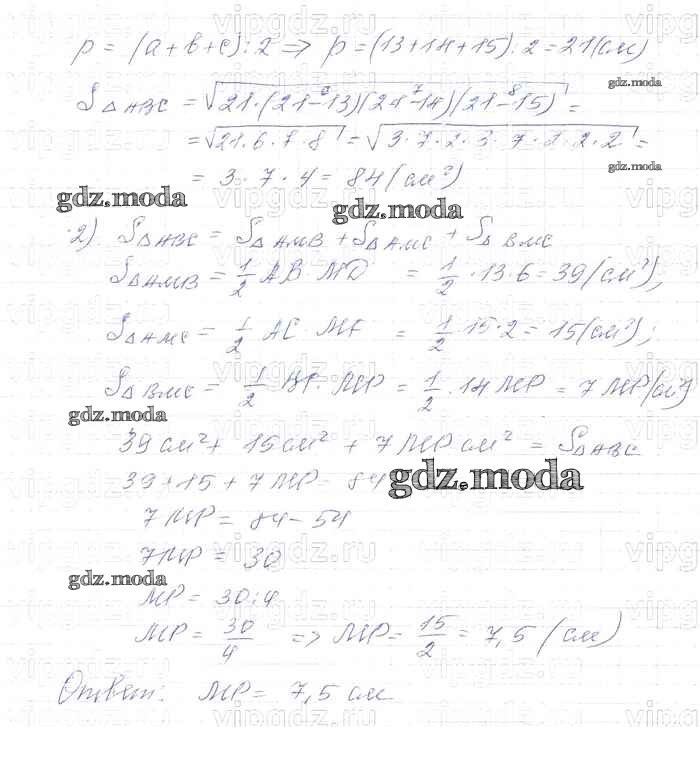 p = (a+b+c):2 => p = (13+14+15):2 = 21(см)
gdz.moda
S△ABC = √21·(21-13)(21-14)(21-15) =
= √21·6·7·8 = √3·7·2·3·7·2·2·2 =
gdz.moda
= 3·7·4 = 84(см²)
gdz.moda
gdz.moda
2). S△ABC = S△AMB + S△AMC + S△BMC
S△AMB = 1/2 AB·MD = 1/2·13·6 = 39(см²),
S△AMC = 1/2 AC·MF = 1/2·15·2 = 15(см²);
S△BMC = 1/2 ·MP = 1/2·14MP = 7MP(см²)
gdz.moda
39см² + 15см² + 7MPсм² = S△ABC
39+15+7MP = 84
gdz.moda
7MP = 84-54
7MP = 30
gdz.moda
MP = 30:4
MP = 30/4 => MP = 15/2 = 7,5 (см)
Ответ: MP = 7,5 см